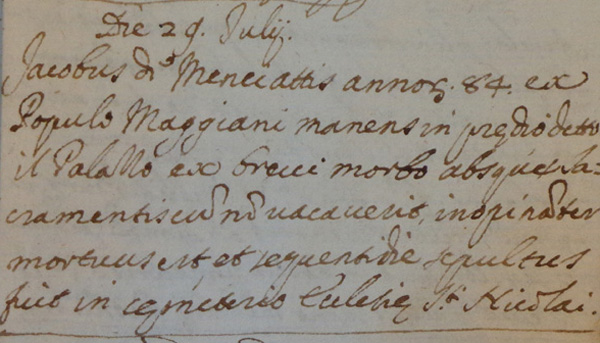 Die 29. Julij.
Jacobus de Menciattis annoȝ. 84. ex
Populo Maggiani manens in prędio detto
il Palazzo ex brevi morbo absque Sa=
cramentis cū nō vacaverit, inopināter
mortuus est et sequenti die sepultus
fuit in cęmeterio Ecclesię S.ti Nicolai.